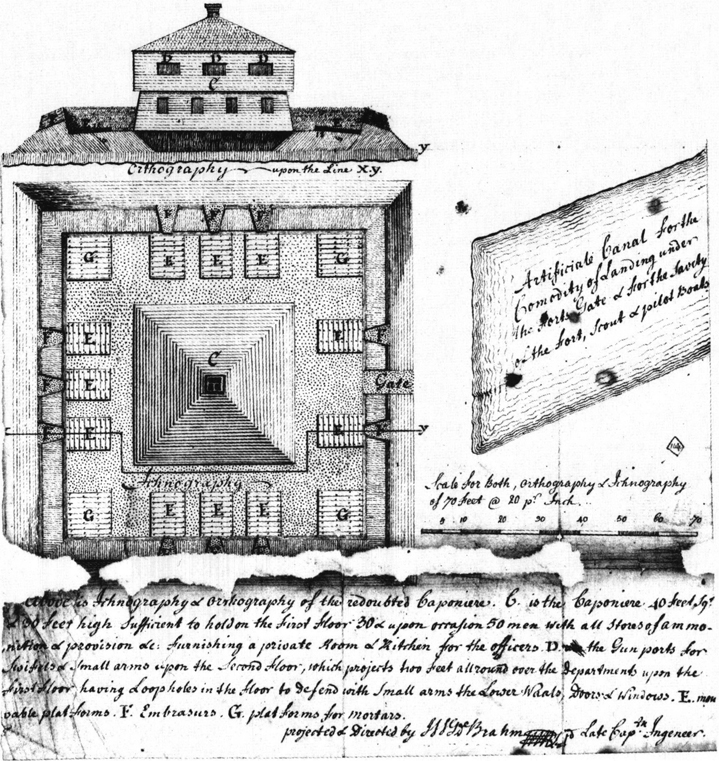 D D D
C
Orthography upon the Line X.y.
y
F F F
G E E E G
F E E F
C
F E Gate
F E E F y
Ichnography
G E E E G
Artificiale Canal for the
Comodity of Landing under
the Forts Gate & for the Savety
of the Fort, Scout & pilot Boats
Scale for Both, Orthography & Ichnography
of 70 Feet @ 20 pr. Inch.
5 10 20 30 40 50 60 70
Above is Ichnography & Orthography of the redoubted Caponiere. C. is the Caponiere 40 Feet Sqr.
& 30 Feet high Sufficient to hold on the First Floor 30 & upon occasion 50 men with all Stores of ammo-
nition & provision &c: Furnishing a private Room & Kitchen for the officers. D. the Gun ports for
Swifels & Small arms upon the Second Floor, which projects two Feet all round over the department upon the
First Floor, having Loopholes in the Floor to defend with Small arms the Lower Waals, Doors & Windows. E. mou
vable platforms. F. Embrasurs. G. platforms for mortars.
projected & Directed by Brahm Late Captn Ingeneer.